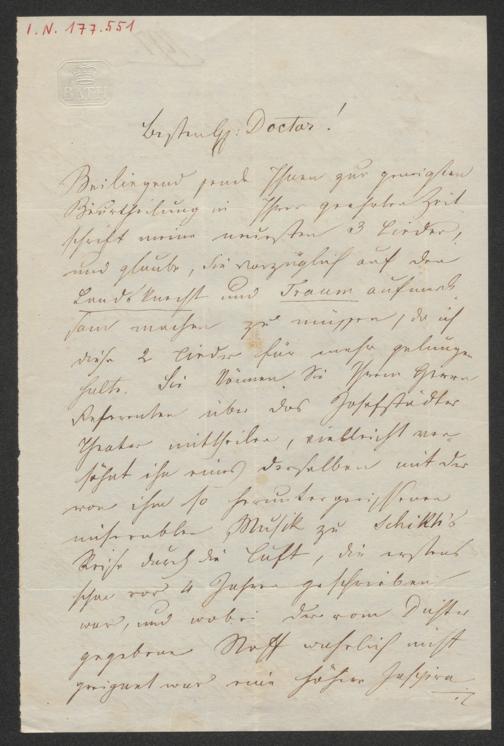 I. N. 177.551
BATH
Besten H: Doctor!
Beiliegend sende Ihnen zur geneigten
Beurtheilung in Ihrer geehrten Zeit
schrift meine neuesten 3 Lieder,
und glaube, Sie vorzüglich auf den
Landsknecht und Traum aufmerk
sam machen zu müssen, da ich
diese 2 Lieder für mehr gelungen
halte. Sie können Sie Ihrem Herrn
Referenten über das Josefstädter
Theater mittheilen, vielleicht ver-
söhnt ihn eines derselben mit der
von ihm so heruntergerissenen
miserablen Musik zu Schikti's
Reise durch die Luft, die erstens
schon vor 4 Jahren geschrieben
war, und wobei der vom Dichter
gegebene Stoff wahrlich nicht
geeignet war eine höhere Inspira